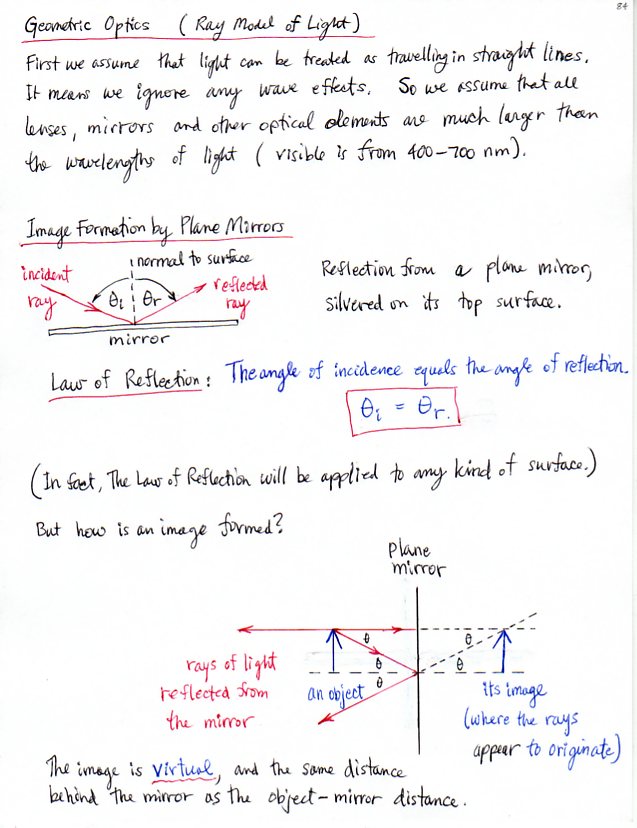 84
Geometric Optics (Ray Model of Light)
First we assume that light can be treated as travelling in straight lines.
It means we ignore any wave effects. So we assume that all
lenses, mirrors and other optical elements are much larger than
the wavelengths of light (visible is from 400-700 nm).
Image Formation by Plane Mirrors
normal to surface
incident
ray
θi
θr
reflected
ray
mirror
Reflection from a plane mirror,
silvered on its top surface.
Law of Reflection: The angle of incidence equals the angle of reflection.
θi = θr.
(In fact, The Law of Reflection will be applied to any kind of surface.)
But how is an image formed?
Plane
mirror
θ
θ
θ
θ
θ
rays of light
reflected from
the mirror
an object
its image
(where the rays
appear to originate)
The image is virtual, and the same distance
behind the mirror as the object-mirror distance.